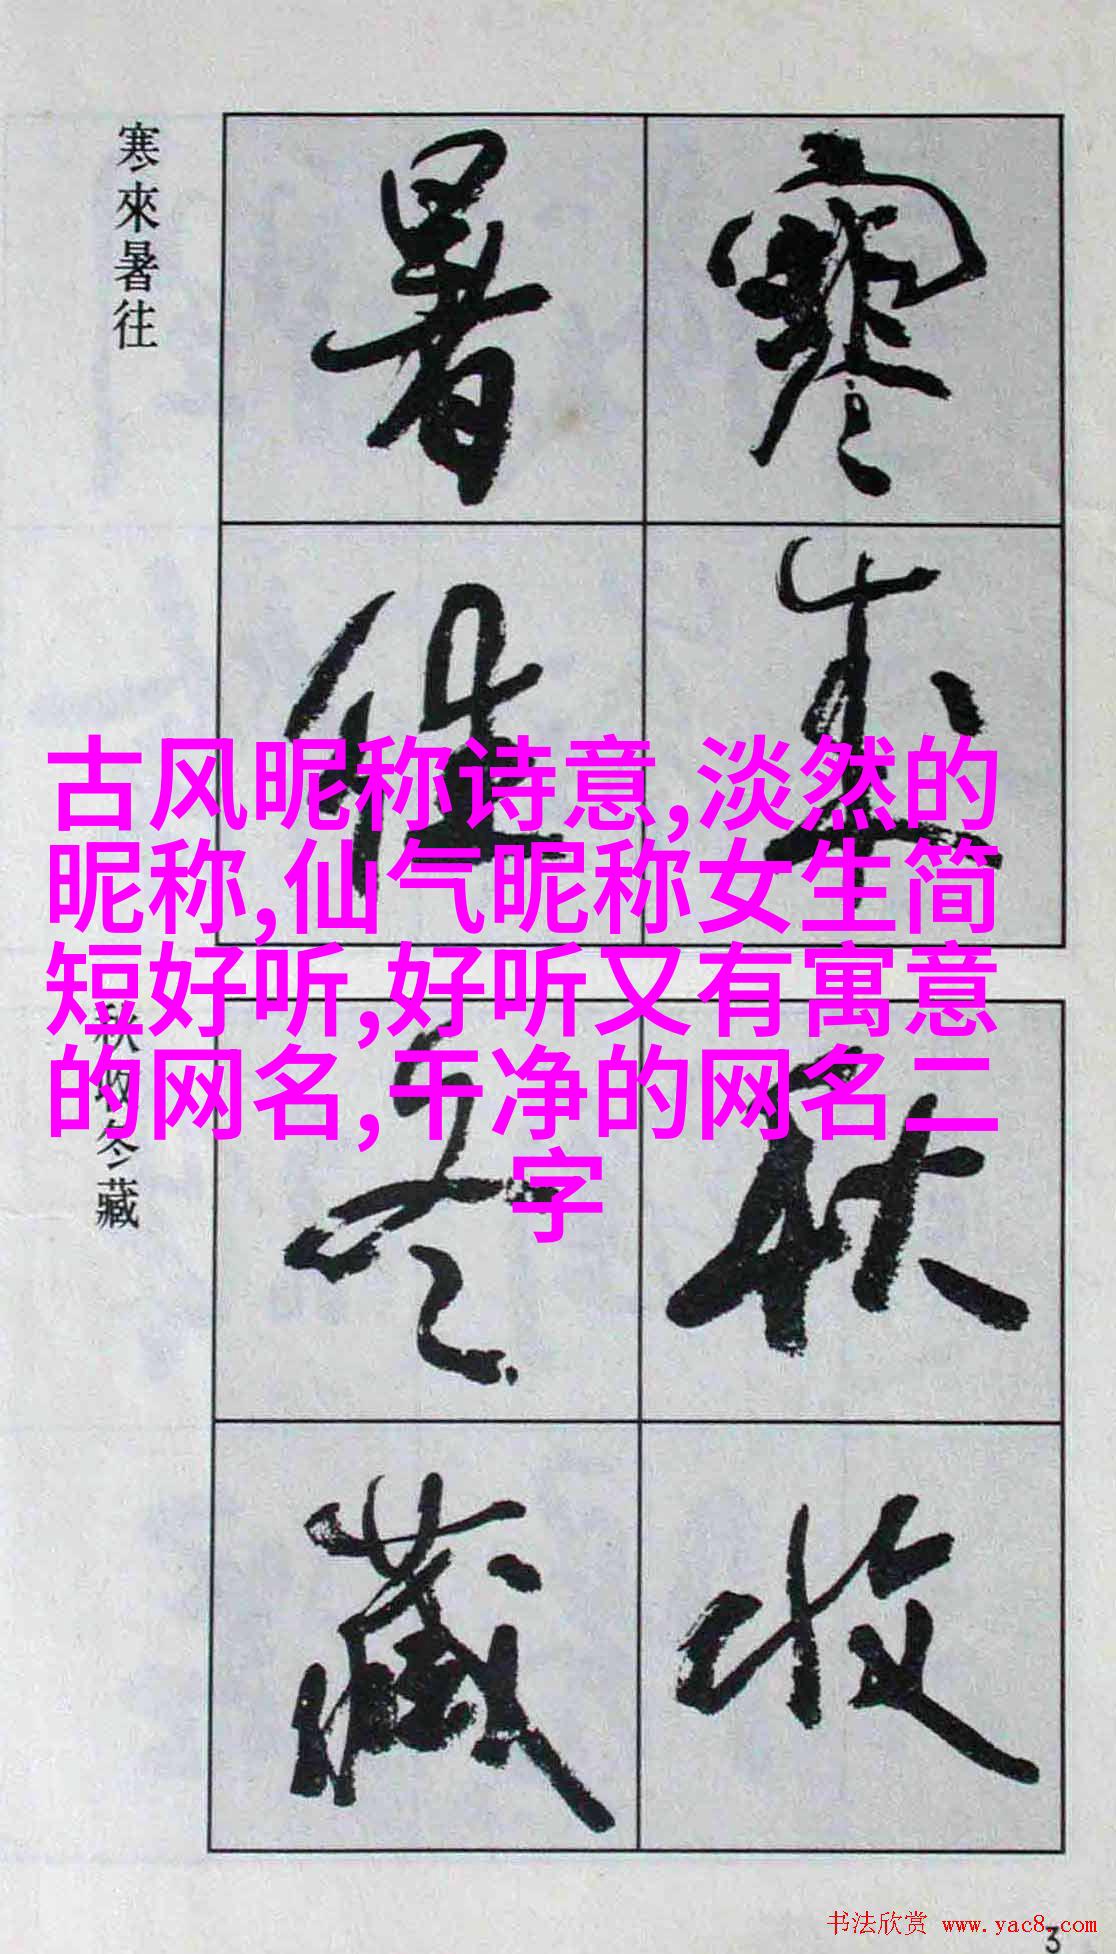 寒來暑往
寒來
暑往
古风昵称诗意,淡然的
昵称,仙气昵称女生简
短好听,好听又有寓意
的网名,干净的网名二
字
秋收冬藏
秋收
冬藏
书法欣赏 www.yac8.com
3